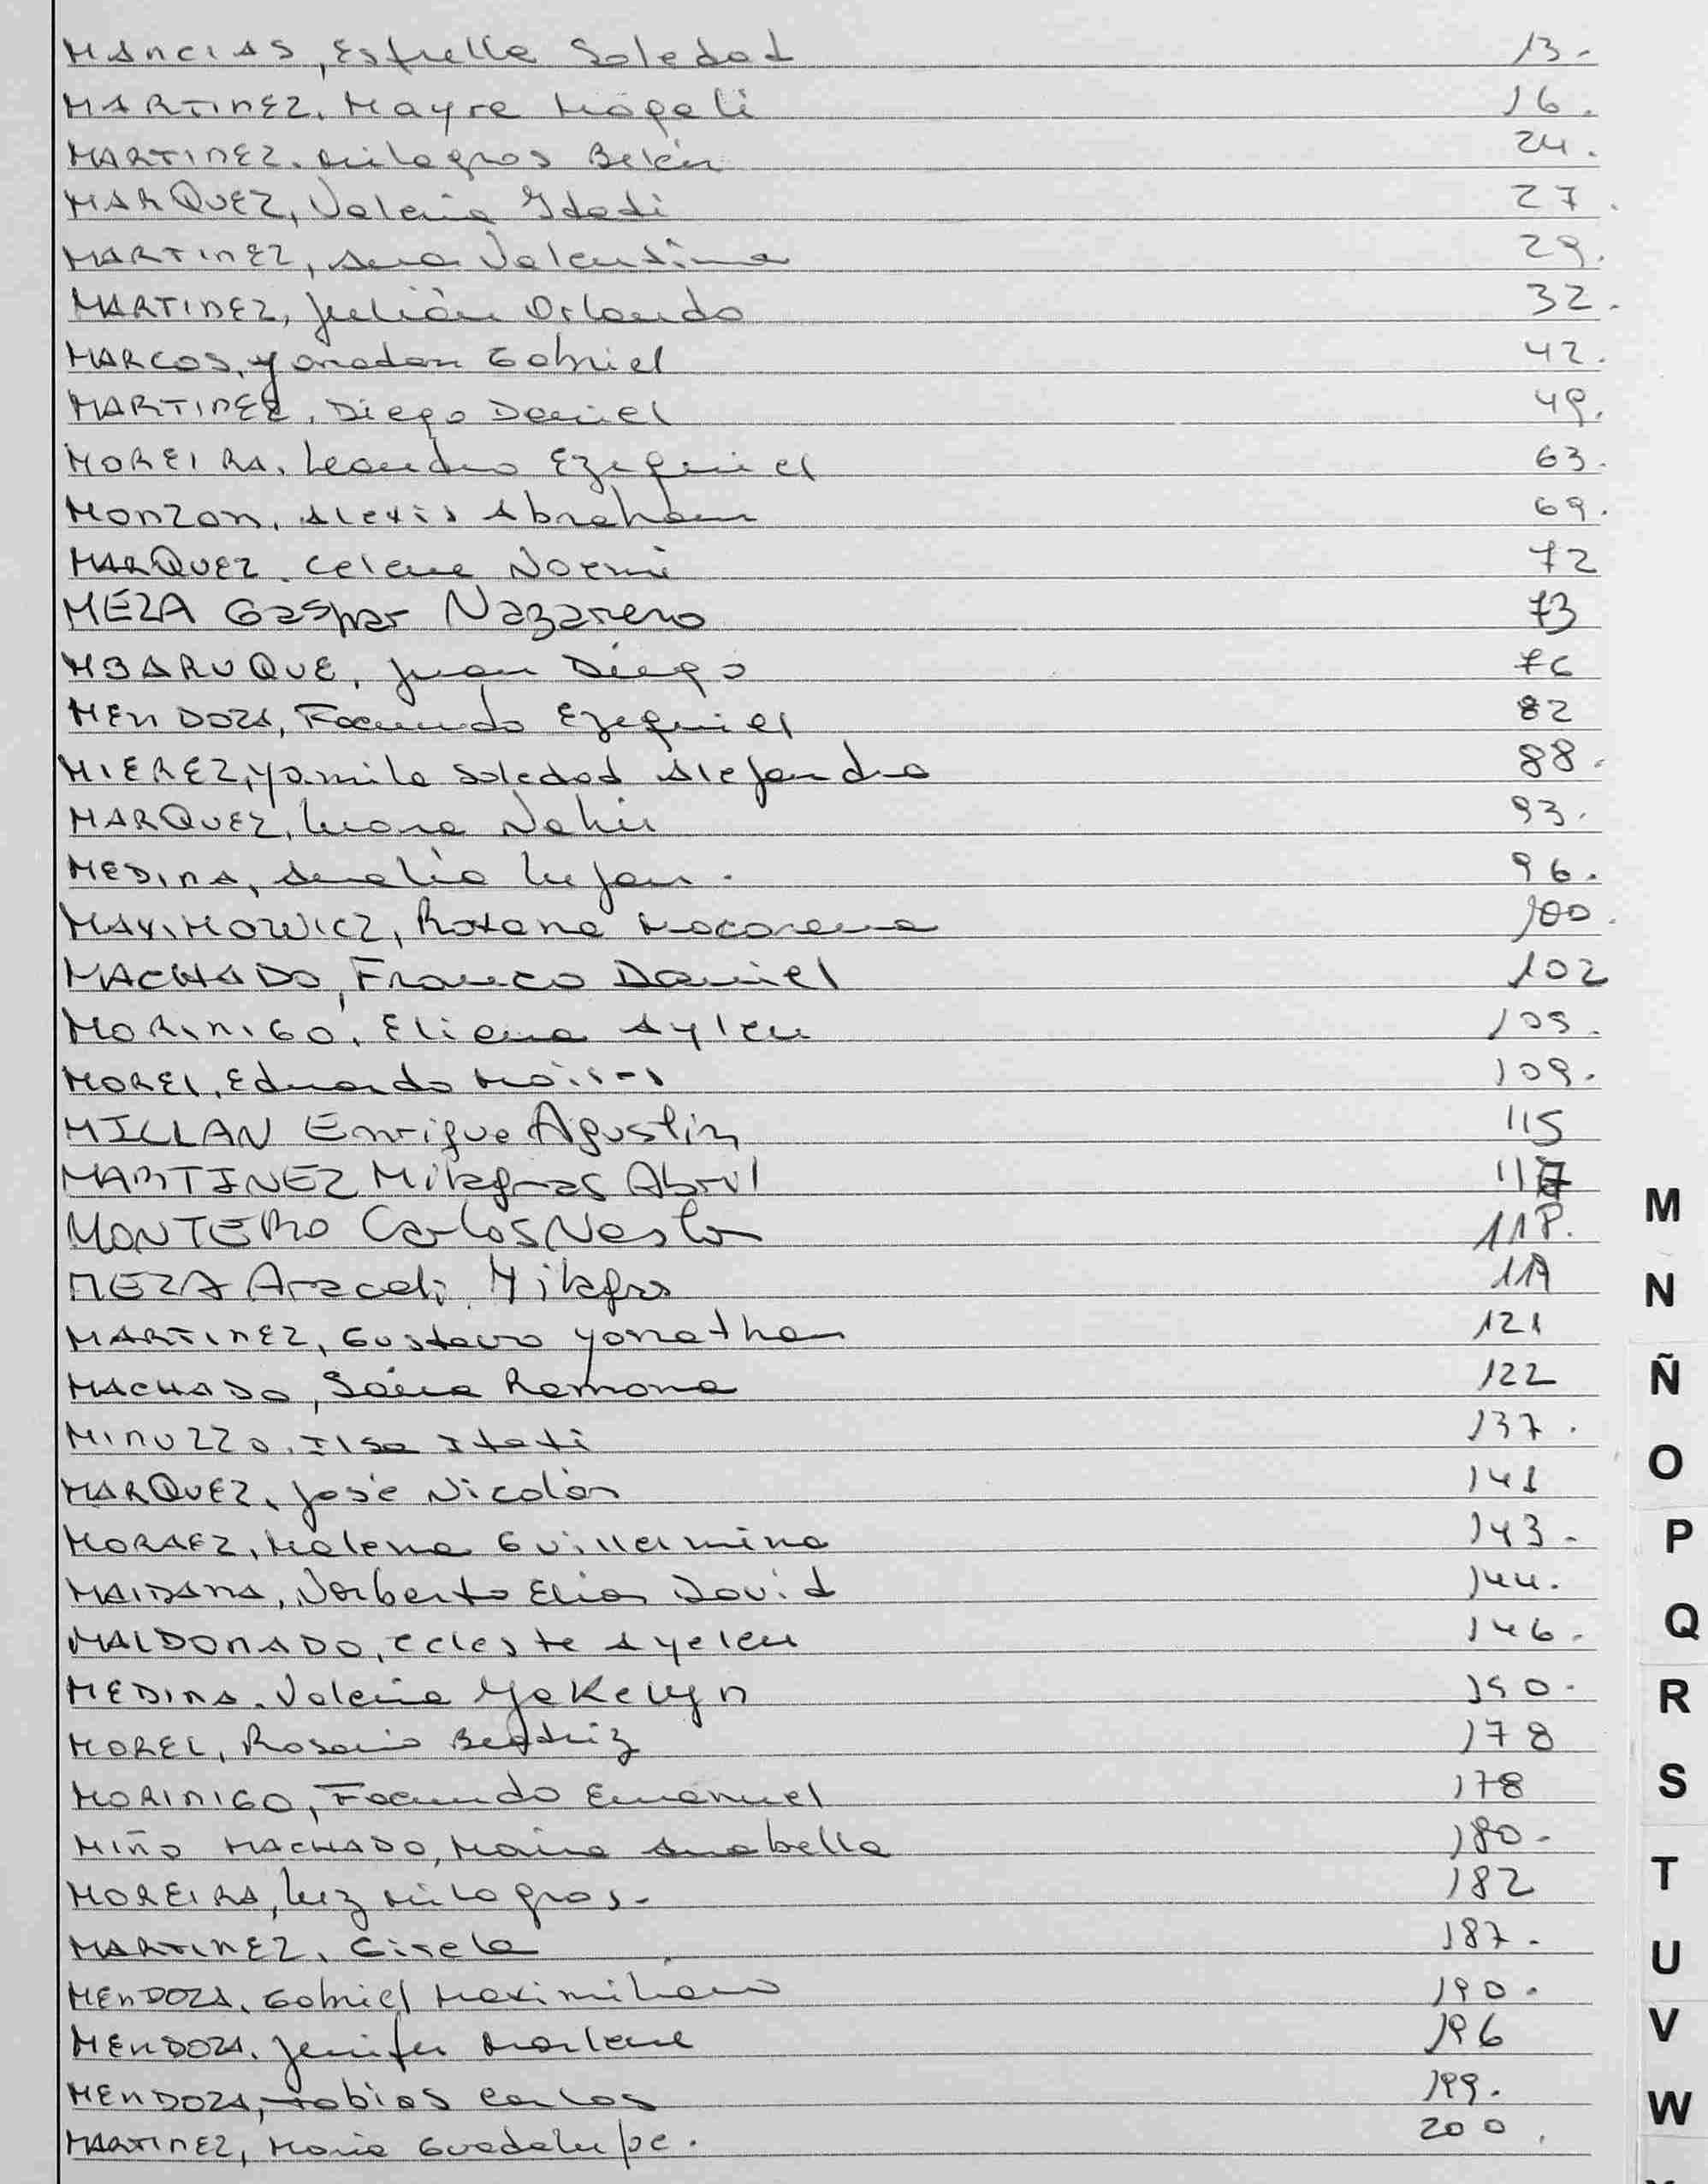 MANCIAS, Estrella Soledad 13.-
MARTINEZ, Mayra Magali 16.
MARTINEZ. Milagros Belén 24.
MARQUEZ, Valeria Itati 27.
MARTINEZ, Ana Valentina 29.
MARTINEZ, Julián Orlando 32.
MARCOS, Yonadan Gabriel 42.
MARTINEZ, Diego Daniel 49.
MOREIRA, Leandro Ezequiel 63.
MONZON, Alexis Abraham 69.
MARQUEZ. Celene Noemi 72
MEZA Gaspar Nazareno 73
MBARUQUE, Juan Diego 76
MENDOZA, Facundo Ezequiel 82
MIEREZ, Yamila Soledad Alejandra 88.
MARQUEZ, Luana Nahir 93.
MEDINA, Analia Lujan. 96.
MAXIMOWICZ, Roxana Macarena 100.
MACHADO, Franco Daniel 102
MORINIGO, Eliana Aylen 105.
MOREL, Eduardo Moises 109.
MILLAN Enrique Agustin 115
MARTINEZ Milagros Abril 117
MONTERO Carlos Nestor 118.
MEZA Araceli Milagros 119
MARTINEZ, Gustavo Yonathan 121
MACHADO, Ramona 122
MINUZZO, Ilsa Itati 137.
MARQUEZ, José Nicolás 141
MORAEZ, Malena Guillermina 143.
MAIDANA, Norberto Elias David 144.
MALDONADO, Celeste Ayelen 146.
MEDINA. Valeria Yakelyn 150.
MOREL, Rosario Beatriz 178
MORINIGO, Facundo Emanuel 178
MIÑO MACHADO, Maira Anabella 180.
MOREIRA, Luz Milagros.- 182
MARTINEZ, Gisela 187.
MENDOZA, Gabriel Maximiliano 190.
MENDOZA, Jenifer Marlene 196
MENDOZA, Tobias Carlos 199.
MARTINEZ, Maria Guadalupe. 200.
M
N
Ñ
O
P
Q
R
S
T
U
V
W